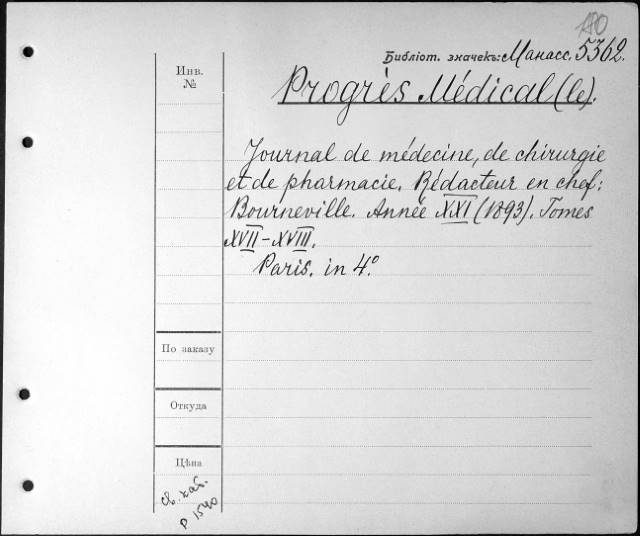 180
Библіот. значекъ: Манасс. 5362.
Инв.
№
Progrès Médical (le).
Journal de médecine, de chirurgie
et de pharmacie. Rédacteur en chef:
Bourneville. Année XXI (1893). Tomes
XVII-XVIII.
Paris. in 4.º
По заказу
Откуда
Цѣна
св. кат.
р 1540